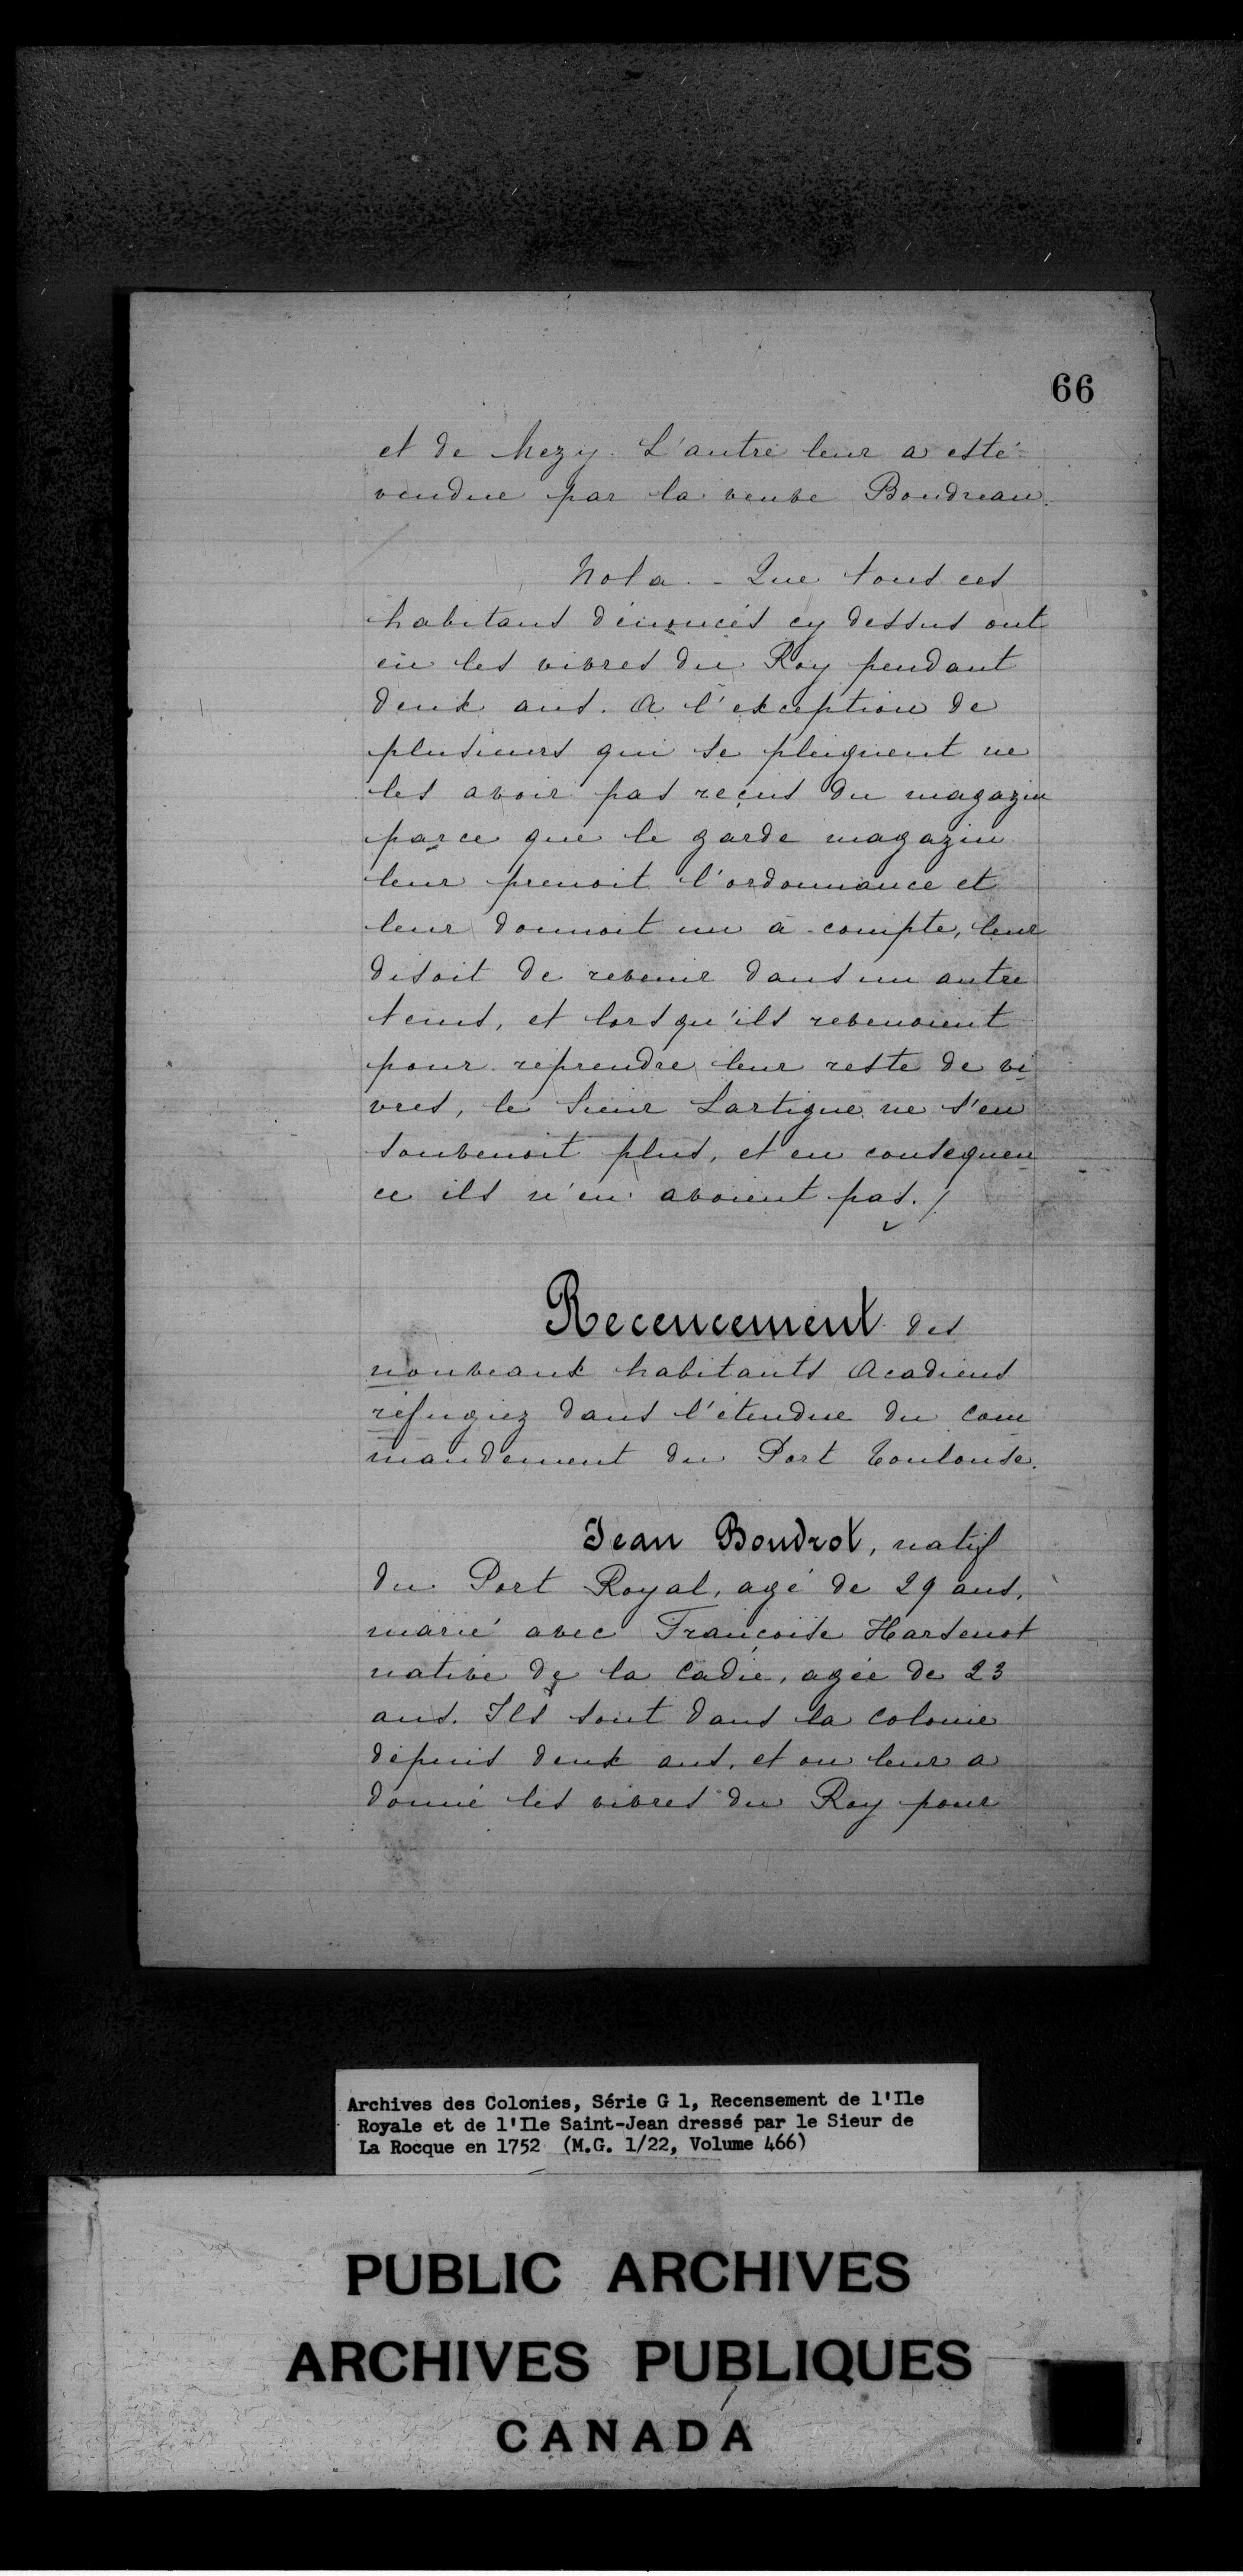 66
et de Mezy. L'autre leur a esté
vendue par la veuve Boudreau.
Nota. - Que tous ces
habitans dénoncés cy dessus ont
eü les vivres du Roy pendant
deux ans. A l'exception de
plusieurs qui se pleignent ne
les avoir pas reçus du magazin
parce que le garde magazin
leur prenoit l'ordonnance et
leur donnoit un à-compte, leur
disoit de revenir dans un autre
tems, et lorsqu'ils revenoient
pour reprendre leur reste de vi
vres, le Sieur Lartigue ne s'en
souvenoit plus, et en consequen
ce ils n'en avoient pas./
Recencement des
nouveaux habitants Acadiens
réfugiez dans l'étendue du com
mandement du Port Toulouse.
Jean Boudrot, natif
du Port Royal, agé de 29 ans,
marié avec Francoise Harsenot
native de la Cadie, agée de 23
ans. Ils sont dans la colonie
depuis deux ans, et on leur a
donné les vivres du Roy pour
Archives des Colonies, Série G 1, Recensement de l'Ile
Royale et de l'Ile Saint-Jean dressé par le Sieur de
La Rocque en 1752 (M.G. 1/22, Volume 466)
PUBLIC ARCHIVES
ARCHIVES PUBLIQUES
CANADA